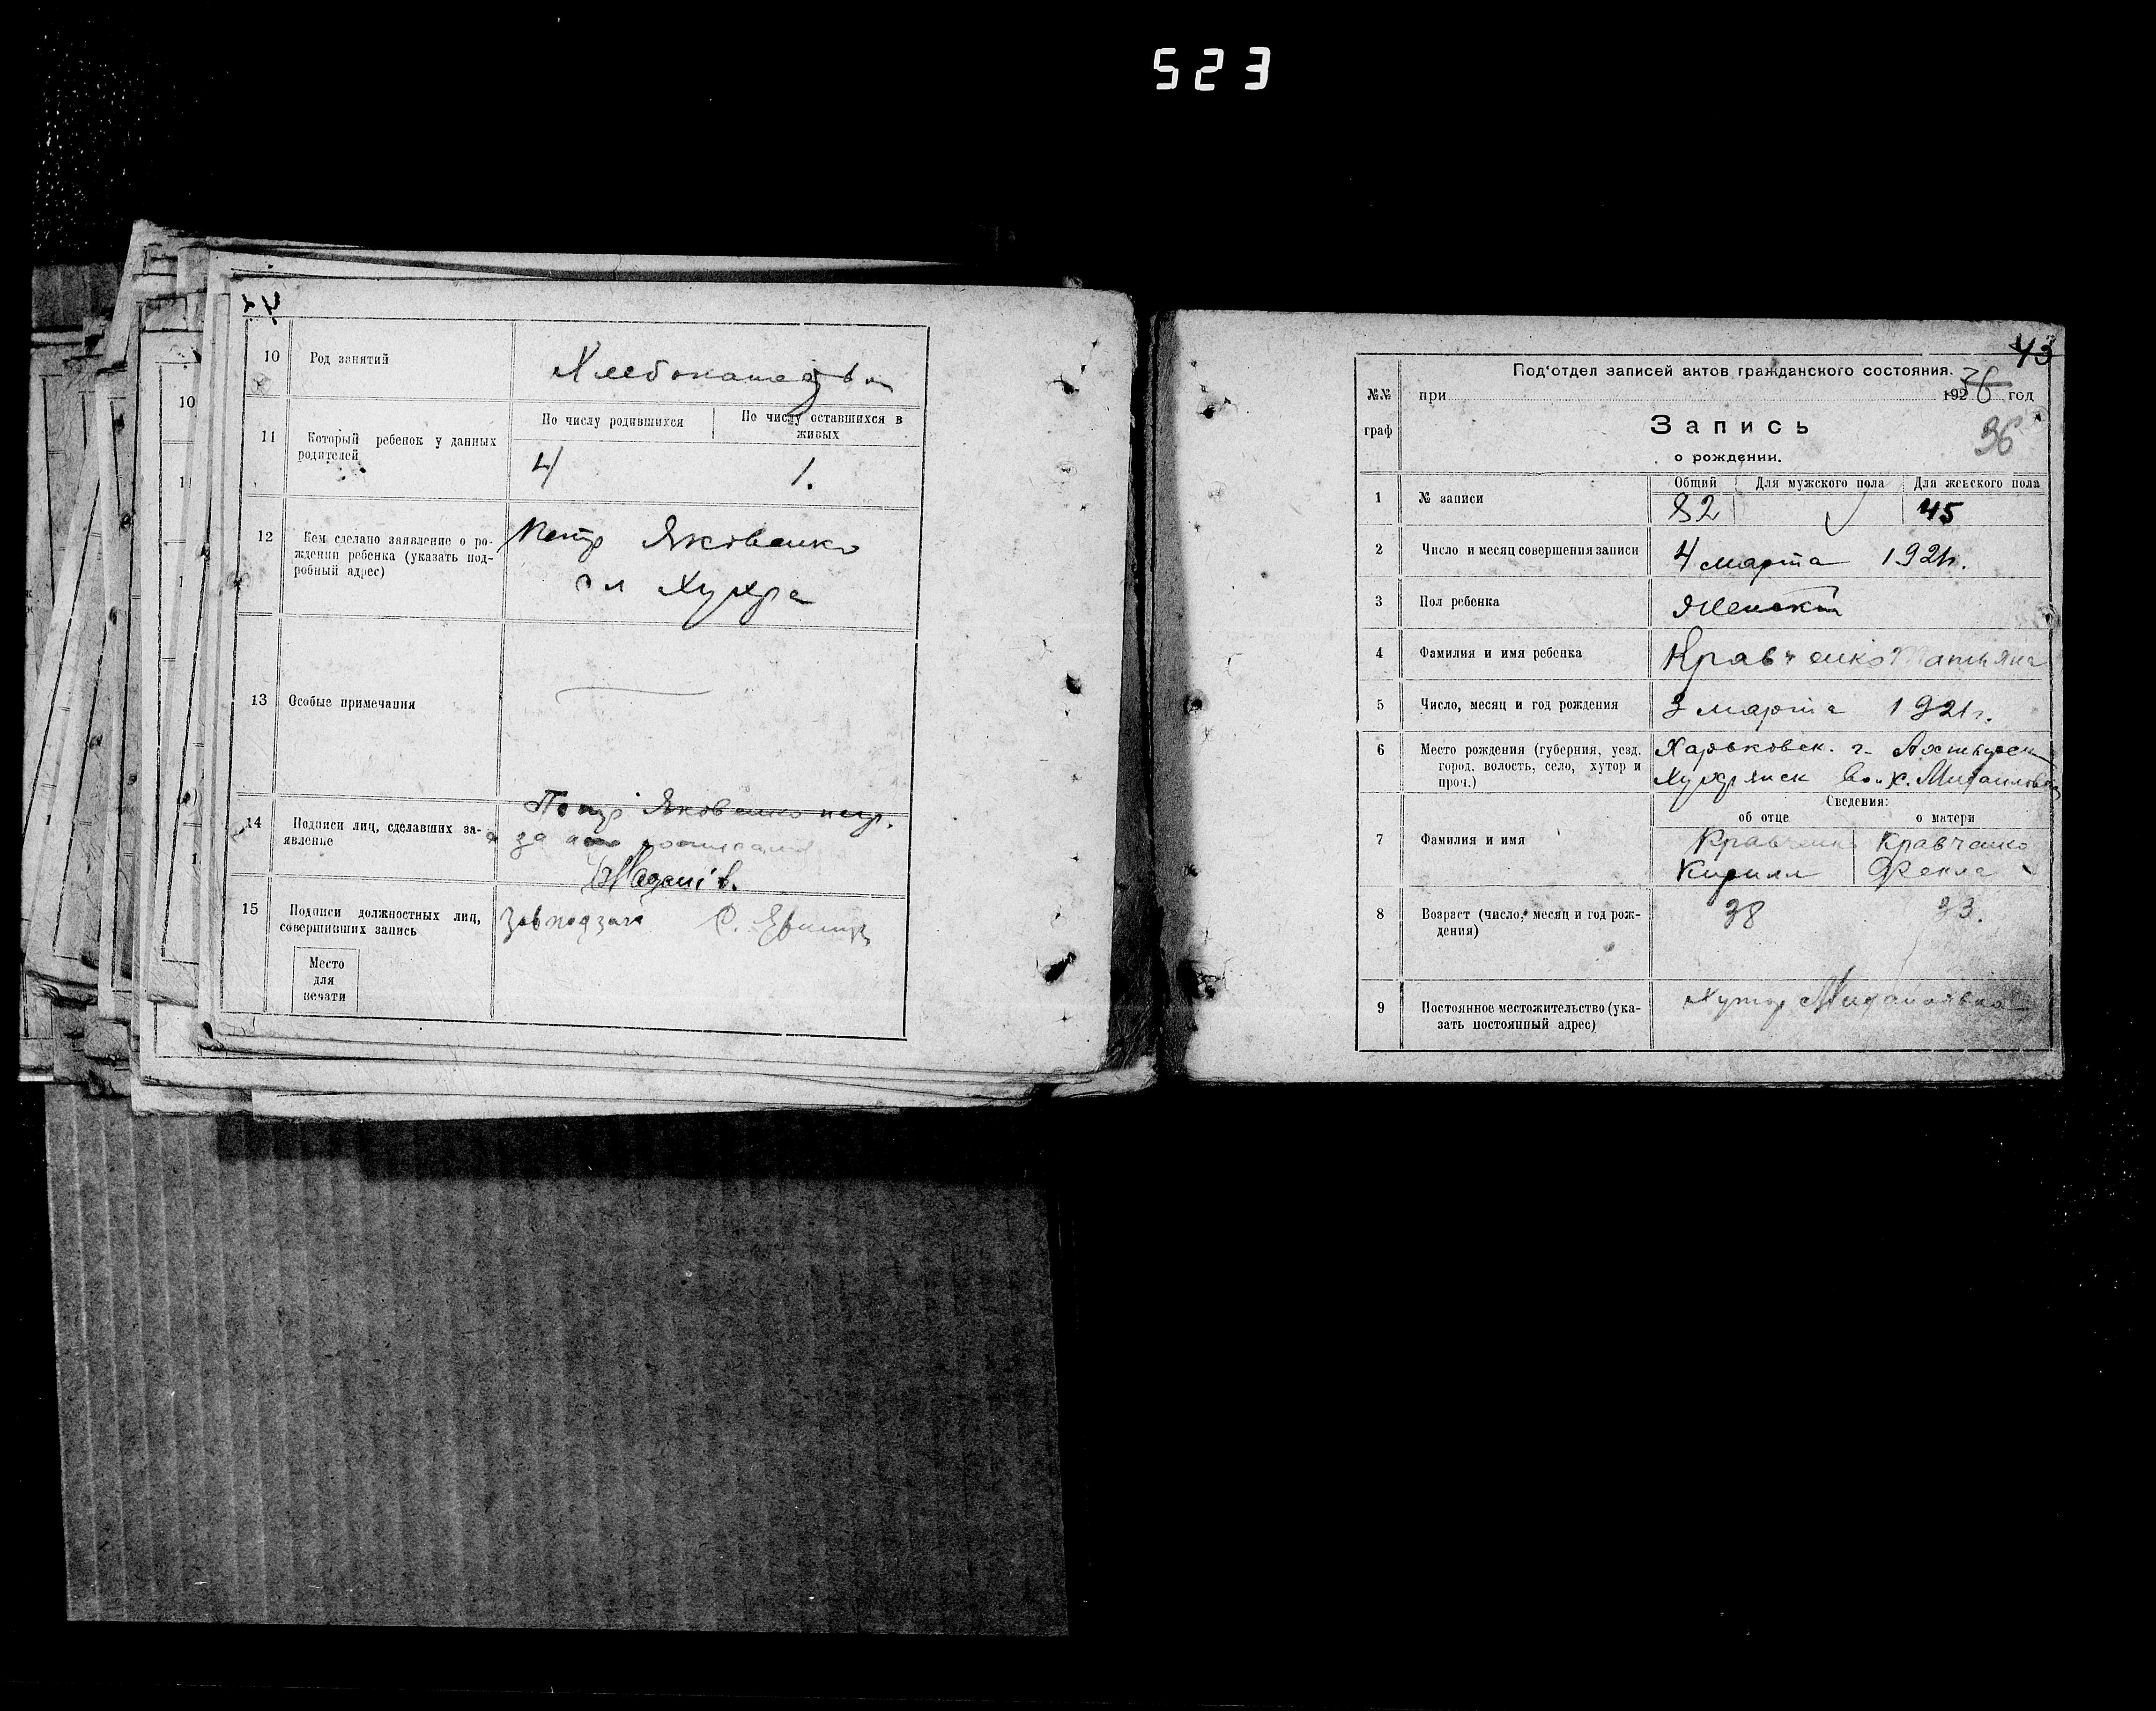 523
10 Род занятий
11 Который ребенок у данных
родителей
По числу родившихся По числу оставшихся в
живых
4 1.
12 Кем сделано заявление о ро-
ждении ребенка (указать под-
робный адрес)
Петр Яковенко
сл Хухра
13 Особые примечания
14 Подписи лиц, сделавших за-
явление
Петр Яковенко негр.
за его
15 Подписи должностных лиц,
совершивших запись
Завподзаг С.
Место
для
печати
10
43
№№
граф
Под'отдел записей актов гражданского состояния.
при 192 год
36
Запись
о рождении.
1 № записи
Общий Для мужского пола Для женского пола
82 45
2 Число и месяц совершения записи 4 марта 1921г.
3 Пол ребенка Женский
4 Фамилия и имя ребенка Кравченко Татьяна
5 Число, месяц и год рождения 3 марта 1921г.
6 Место рождения (губерния, уезд,
город, волость, село, хутор и
проч.)
Харьковск. г. Ахтырск
Хухрянск вол х. Михайловка
Сведения:
об отце о матери
7 Фамилия и имя
Кравченко Кравченко
Кирилл Фекла
8 Возраст (число, месяц и год рож-
дения)
38 33.
9 Постоянное местожительство (ука-
зать постоянный адрес)
Хутор Михайловка